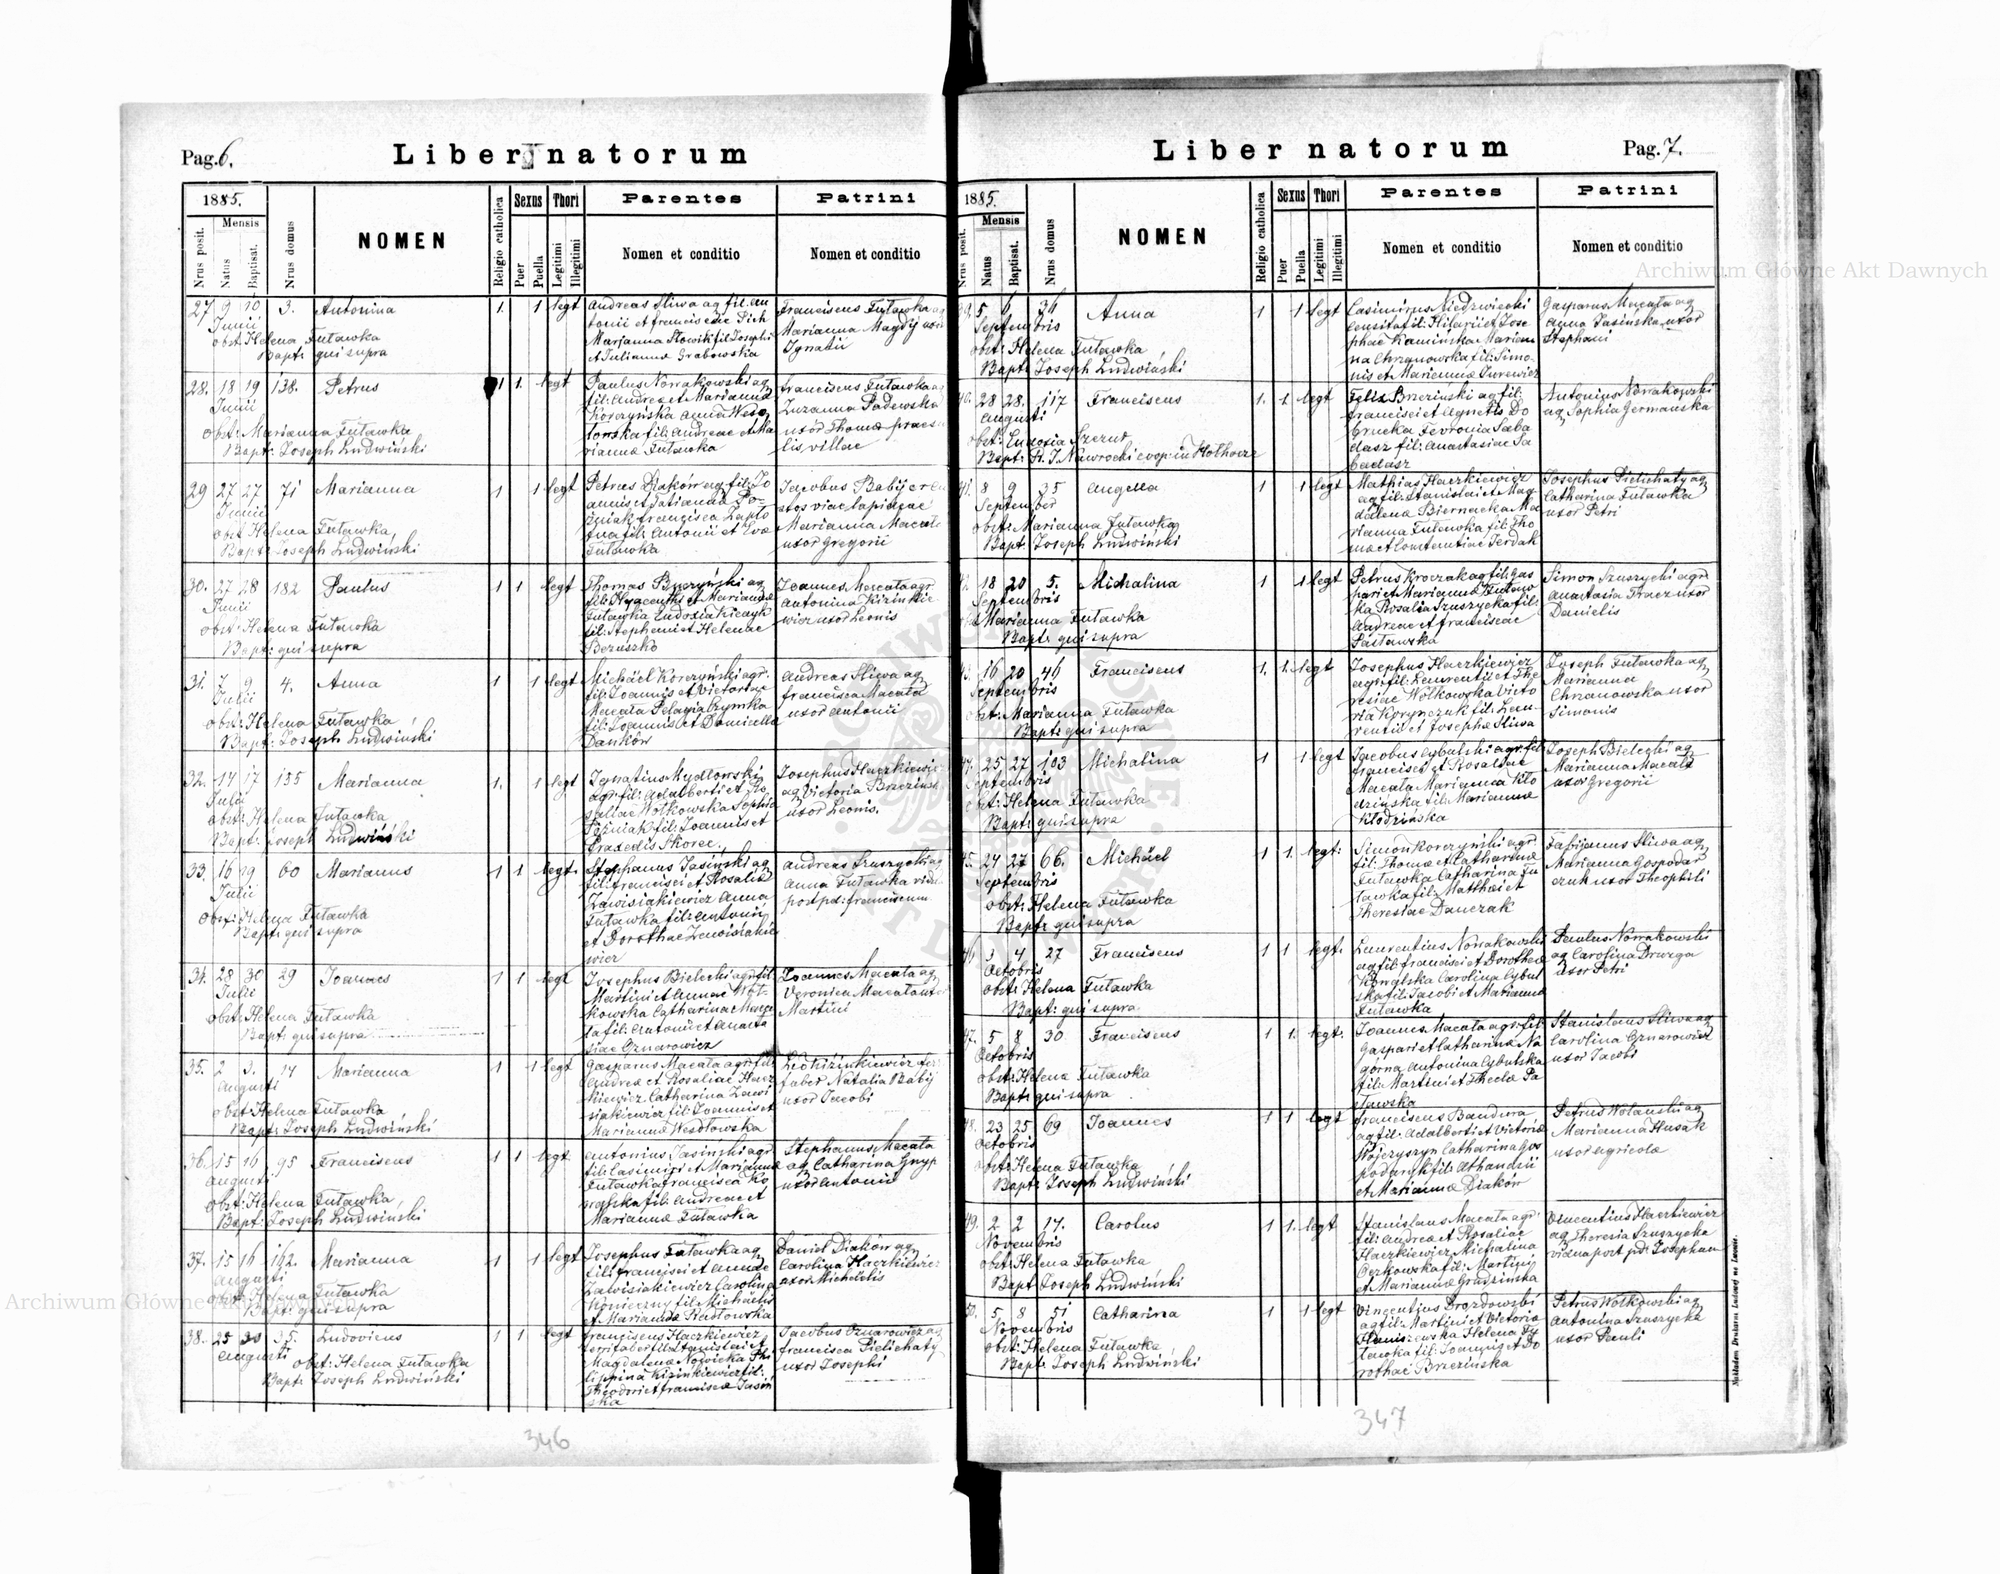 Pag. 6.
Liber natorum
1885.
Nrus posit.
Mensis
Natus
Baptisat.
Nrus domus
NOMEN
Religio catholica
Sexus
Puer
Puella
Thori
Legitimi
Illegitimi
Parentes
Nomen et conditio
Patrini
Nomen et conditio
27 9 10 3. Antonina 1. 1 legt
Junii
obst: Helena Futawka
Bapt: qui supra
Andreas Sliwa ag fil: An
tonii et Franciscae
Marianna fil: Josephi
et Julianna Grabowska
Franciscus Futawka ag
Marianna
Ignatii
28. 18 19 138. Petrus 1 1. legt
Junii
obst: Marianna Futawka
Bapt: Joseph Ludwiński
Paulus Nowakowski ag
fil: Andreae et Marianna
Korczyńska Anna Weso
łowska fil: Andreae et Ma
rianna Futawka
Franciscus Futawka ag
Zuzanna Sadewska
uxor Thomae
lis villae
29 27 27 71 Marianna 1 1 legt
Junii
obst Helena Futawka
Bapt: Joseph Ludwiński
Petrus Diaków ag fil: Jo
annis et
Francisca
fil: Antonii et Eva
Futawka
Jacobus Babij
Marianna Macała
uxor Gregorii
30. 27 28 182 Paulus 1 1 legt
Junii
obst: Helena Futawka
Bapt: qui supra
Thomas Buczyński ag
fil: Hyacenthi et Marianna
Futawka Eudoxia
fil: Stephani et Helenae
Bezuszko
Joannes Macała agr.
Antonina Kizinkie
wicz uxor Leonis
31. 7 9 4. Anna 1 1 legt
Julii
obst: Helena Futawka
Bapt: Joseph Ludwiński
Michael Korczyński agr.
fil: Joannis et Victoriae
Macała Pelagia
fil: Joannis et Domicella
Danków
Andreas Sliwa ag
Francisca Macała
uxor Antonii
32. 14 17 155 Marianna 1. 1 legt
Julii
obst: Helena Futawka
Bapt: Joseph Ludwiński
Ignatius Mydłowski
agr. fil: Adalberti et Ro
saliae Wołkowska Sophia
Poźniak fil: Joannis et
Praxedis Skorec.
Josephus Haczkiewicz
ag Victoria
uxor Leonis.
33. 16 19 60 Marianus 1 1 legt.
Julii
obst: Helena Futawka
Bapt: qui supra
Stephanus Jasiński ag
fil: Francisci et Rosalia
Zawisiakiewicz Anna
Futawka fil: Antonii
et Dorothae
wicz
Andreas Szuszycki ag
Anna Futawka vidu
post pd: Franciscum
34. 28 30 29 Joannes 1 1 legt
Julii
obst: Helena Futawka
Bapt: qui supra
Josephus Bielecki agr. fil:
Martini et Annae Woł-
kowska Catharina Maca
ła fil: Antonii et Anasta
siae Oznarowicz
Joannes Macała ag
Veronica Macała uxor
Martini
35. 2 3. 14 Marianna 1 1 legt
Augusti
obst: Helena Futawka
Bapt: Joseph Ludwiński
Gasparus Macała agr. fil:
Andrea et Rosaliae Hacz
kiewicz Catharina Zawi
siakiewicz fil: Joannis et
Marianna Wesołowska
Leo Kizinkiewicz fer
faber Natalia Babij
uxor Jacobi
36. 15 16 95 Franciscus 1 1 legt
Augusti
obst: Helena Futawka
Bapt: Joseph Ludwiński
Antonius Jasiński agr.
fil: Casimiri et Marianna
Futawka Francisca Ko
walska fil: Andreae et
Marianna Futawka
Stephanus Macała
ag Catharina Gnyp
uxor Antonii
37. 15 16 162. Marianna 1 1 legt
Augusti
obst: Helena Futawka
Bapt: qui supra
Josephus Futawka ag
fil: Francisci et Annae
Zawisiakiewicz Carolina
Konieczny fil: Michaelis
et Marianna Radłowska
Daniel Diaków ag
Carolina Haczkiewic:
uxor Michaelis
38. 25 30 35. Ludovicus 1 1 legt
Augusti
obst: Helena Futawka
Bapt: Joseph Ludwiński
Franciscus Haczkiewicz
ferrifaber fil: Stanislai et
Magdalena Nowicka Phi
lippina Kizinkiewicz fil:
Theodori et Francisca Jasiń
ska
Jacobus Oznarowicz ag
Francisca Pielichaty
uxor Josephi
346
Pag. 7.
Liber natorum
1885.
Nrus posit.
Mensis
Natus
Baptisat.
Nrus domus
NOMEN
Religio catholica
Sexus
Puer
Puella
Thori
Legitimi
Illegitimi
Parentes
Nomen et conditio
Patrini
Nomen et conditio
39. 5 6 36 Anna 1 1 legt
Septembris
obst: Helena Futawka
Bapt: Joseph Ludwiński
Casimirus Niedzwiecki
fil: Hilarii et Jose
phae Kamińska Marian
na Chrzanowska fil: Simo
nis et Marianna Jurewicz
Gasparus Macała ag
Anna Jasińska uxor
Stephani
40. 28 28. 117 Franciscus 1. 1. legt
Augusti
obst: Eudoxia Szerur
Bapt: R. J. Nawrocki coop: in
Felix Brzeziński ag fil:
Francisci et Agnetis Do
brucka Fevronia Saba
dasz fil: Anastasiae Sa
badasz
Antonius Nowakowski
ag Sophia Germańska
41. 8 9 35 Angela 1 1 legt
Septembr
obst: Marianna Futawka
Bapt: Joseph Ludwiński
Mathias Haczkiewicz
ag fil: Stanislai et Mag
dalena Biernacka Ma
rianna Futawka fil: Tho
mae et Constantiae Jerdak
Josephus Pielichaty ag
Catharina Futawka
uxor Petri
42. 18 20 5. Michalina 1 1 legt
Septembris
obst: Marianna Futawka
Bapt: qui supra
Petrus Kroczak ag fil: Gas
pari et Marianna Futaw
ka Rosalia Szuszycka fil:
Andreae et Franciscae
Pastawska
Simon Szuszycki agr.
Anastasia Tracz uxor
Danielis
43. 16 20 46 Franciscus 1. 1. legt
Septembris
obst: Marianna Futawka
Bapt: qui supra
Josephus Haczkiewicz
agr. fil: Laurentii et The
resiae Wołkowska Victo
ria Korynczuk fil: Lau
rentii et Josepha Sliwa
Joseph Futawka ag
Marianna
Chrzanowska uxor
Simonis
44. 25 27 103 Michalina 1 1 legt
Septembris
obst: Helena Futawka
Bapt: qui supra
Jacobus Cybulski agr. fil:
Francisci et Rosaliae
Macała Marianna Kło
dzińska fil: Marianna
Kłodzińska
Joseph Bielecki ag
Marianna Macała
uxor Gregorii
45. 24 27 66. Michael 1 1. legt:
Septembris
obst: Helena Futawka
Bapt: qui supra
Simon Korczyński agr
fil: Thoma et Catharina
Futawka Catharina Fu
tawka fil: Matthaei et
Theresiae Danczak
Fabijanus Sliwa ag
Marianna Gospodar
czuk uxor Theophili
46. 3 4 27 Franciscus 1 1 legt.
Octobris
obst: Helena Futawka
Bapt: qui supra
Laurentius Nowakowski
ag fil: Francisci et Dorothea
Kowalska Carolina Cybul
ska fil: Jacobi et Marianna
Futawka
Paulus Nowakowski
ag Carolina Drwęga
uxor Petri
47. 5 8 30 Franciscus 1 1. legt.
Octobris
obst: Helena Futawka
Bapt: qui supra
Joannes Macała agr. fil:
Gaspari et Catharina Na
górna Antonina Cybulska
fil: Martini et Thecla Pa
stawska
Stanislaus Sliwa ag
Carolina Oznarowicz
uxor Jacobi
48. 23 25 69 Joannes 1 1 legt
Octobris
obst: Helena Futawka
Bapt: Joseph Ludwiński
Franciscus Bandura
ag fil: Adalberti et Victoria
Wojczyszyn Catharina Gos
podarzyk fil: Athanasii
et Marianna Diaków
Petrus Wolański ag
Marianna Husak
uxor agricolae
49. 2 2 17. Carolus 1 1. legt.
Novembris
obst: Helena Futawka
Bapt: Joseph Ludwiński
Stanislaus Macała agr
fil: Andrea et Rosaliae
Haczkiewicz Michalina
Oczkowska fil: Martini
et Marianna Gradzińska
Vincentius Haczkiewicz
ag Theresia Szuszycka
vidua post pd: Josephum
50. 5 8 51 Catharina 1 1 legt
Novembris
obst: Helena Futawka
Bapt: Joseph Ludwiński
Vincentius Drozdowski
ag fil: Martini et Victoria
Helena Fu
tawka fil: Joannis et Do
rothae Brzezińska
Petrus Wołkowski ag
Antonina Szuszycka
uxor Pauli
Nakładem Drukarni Ludowej we Lwowie.
347
Archiwum Główne Akt Dawnych
Archiwum Główne Akt Dawnych